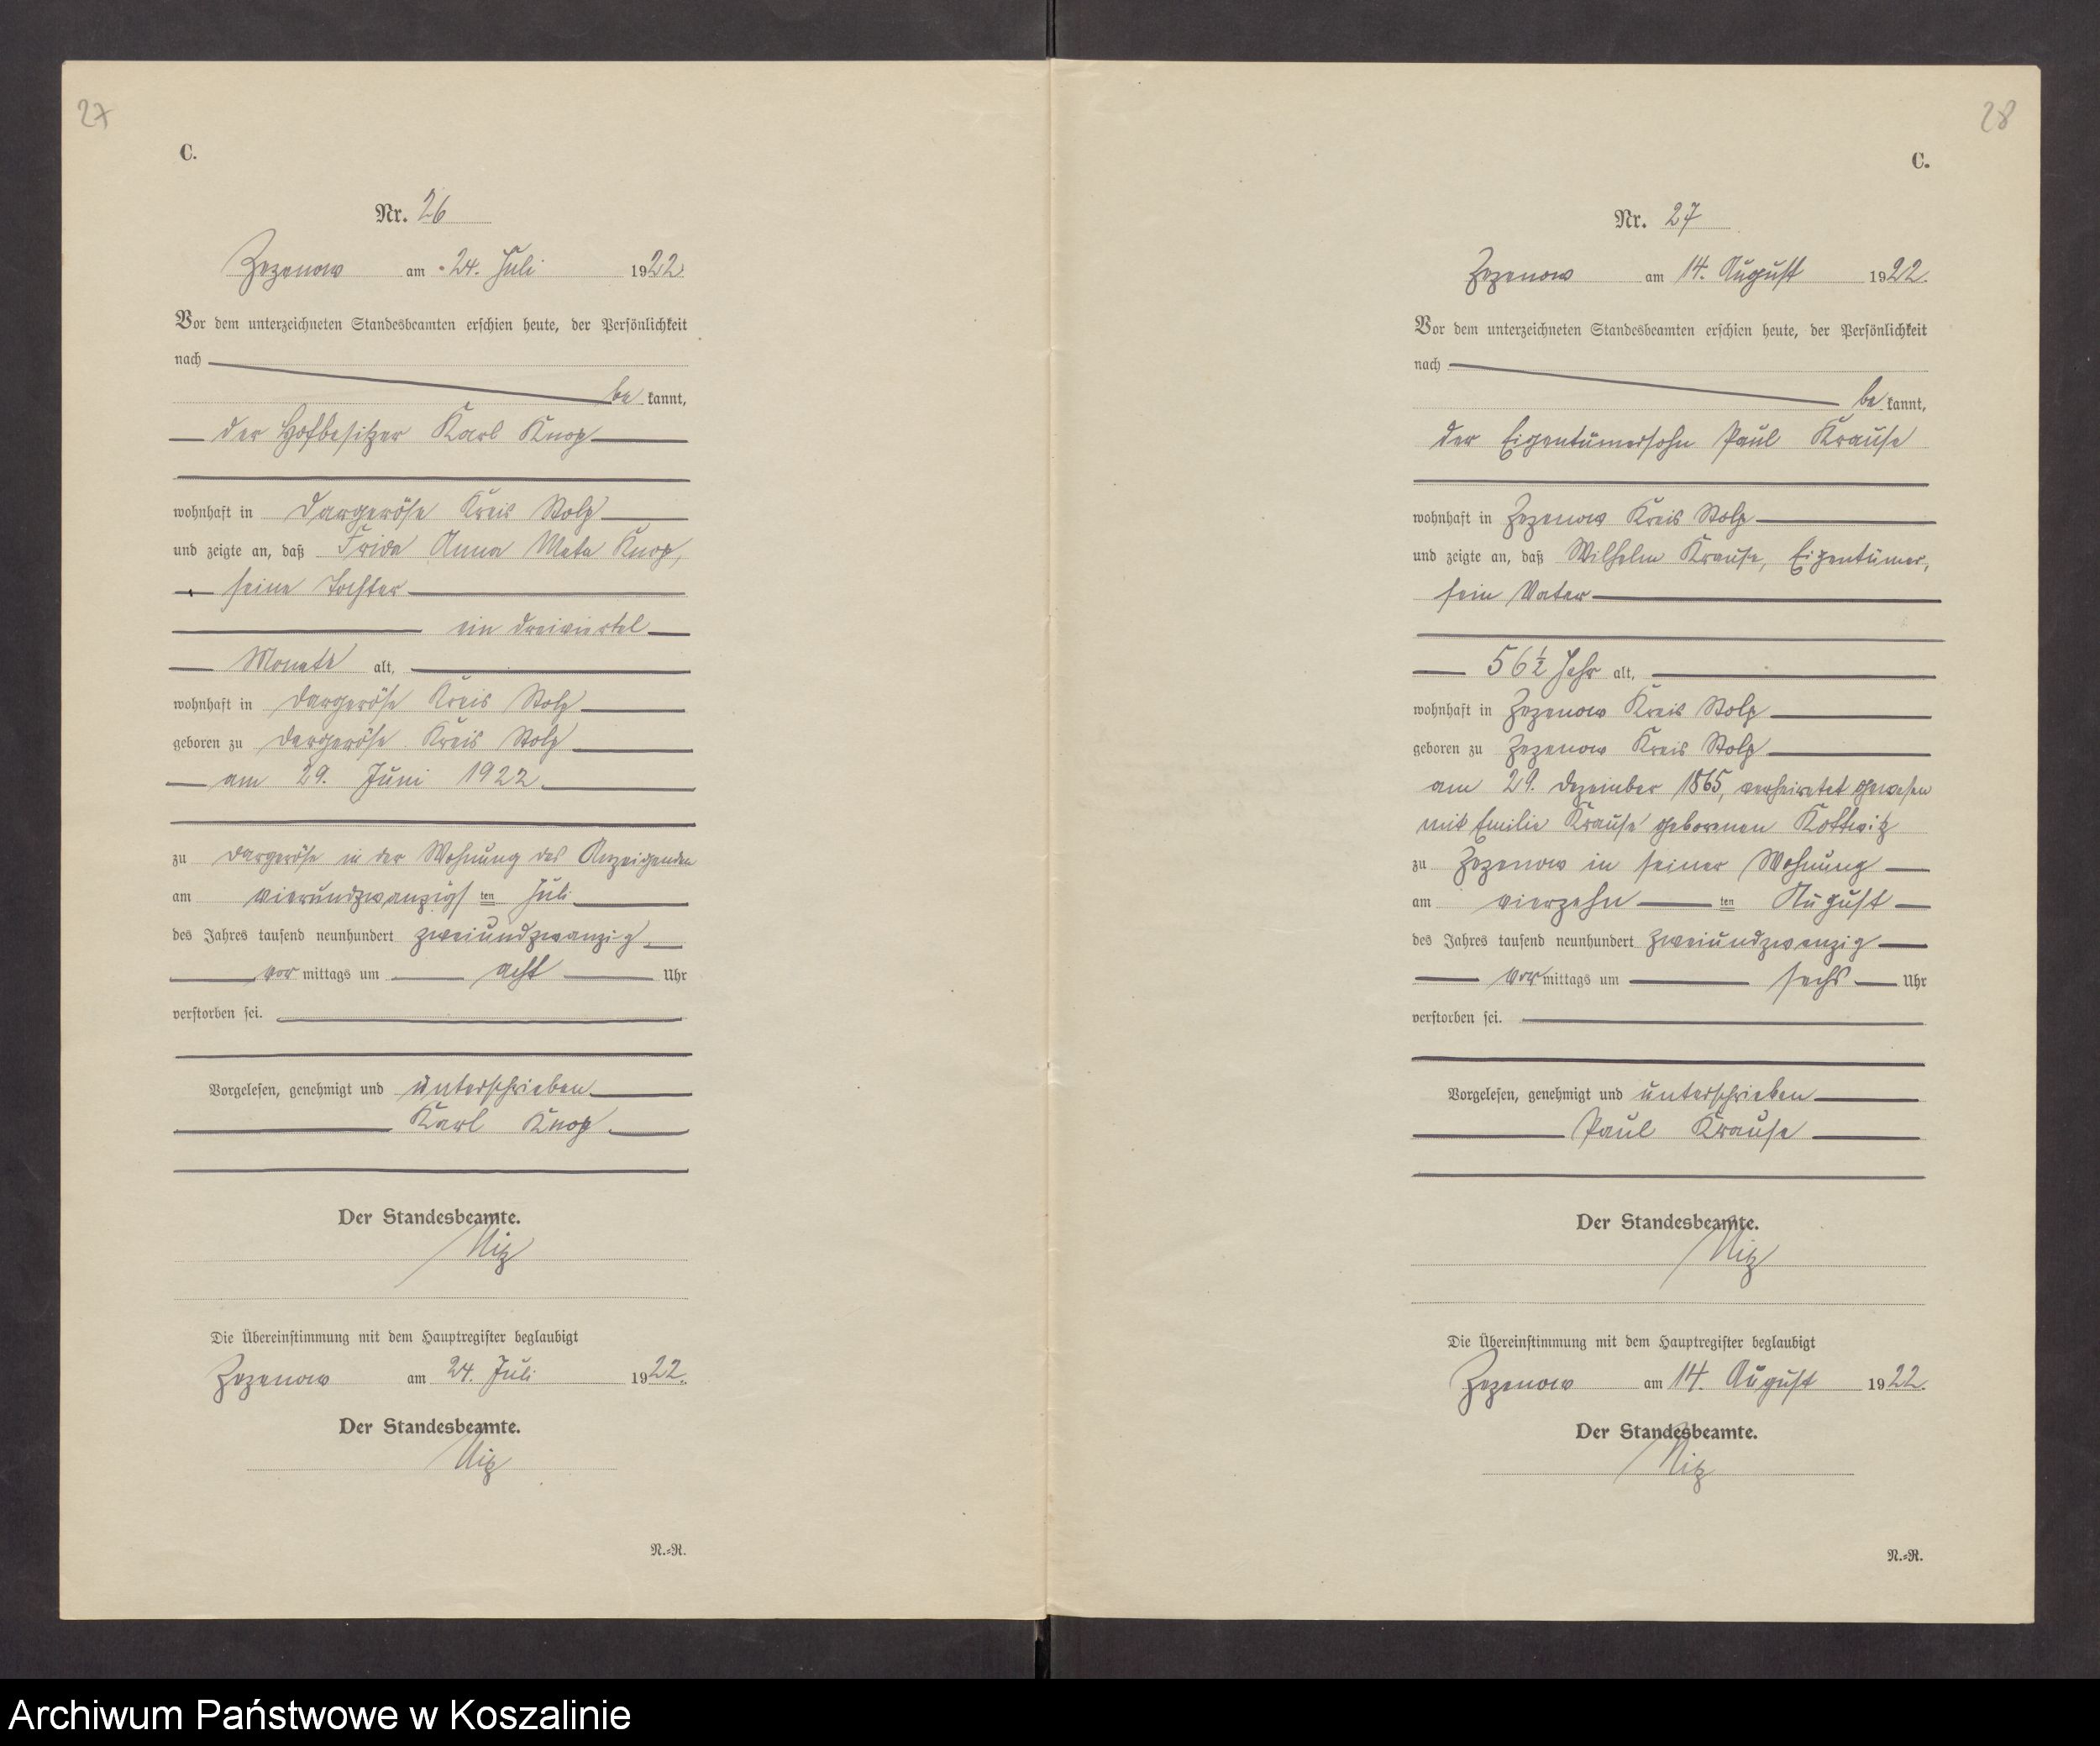 27
C.
Nr. 26
Zezenow am 24. Juli 1922
Vor dem unterzeichneten Standesbeamten erschien heute, der Persönlichkeit
nach
be kannt,
der Hofbesitzer Karl Knop
wohnhaft in Dargeröse Kreis Stolp
und zeigte an, daß Frida Anna Meta Knop,
seine Tochter
ein dreiviertel
Monate alt,
wohnhaft in Dargeröse Kreis Stolp
geboren zu Dargeröse Kreis Stolp
am 29. Juni 1922
zu Dargeröse in der Wohnung des Anzeigenden
am vierundzwanzigs ten Juli
des Jahres tausend neunhundert zweiundzwanzig
vor mittags um acht Uhr
verstorben sei.
Vorgelesen, genehmigt und unterschrieben
Karl Knop
Der Standesbeamte.
Die Übereinstimmung mit dem Hauptregister beglaubigt
Zezenow am 24. Juli 1922.
Der Standesbeamte.
N.=R.
28
C.
Nr. 27
Zezenow am 14. August 1922.
Vor dem unterzeichneten Standesbeamten erschien heute, der Persönlichkeit
nach
be kannt,
der Eigentümersohn Paul Krause
wohnhaft in Zezenow Kreis Stolp
und zeigte an, daß Wilhelm Krause, Eigentümer,
sein Vater
56 ½ Jahr alt,
wohnhaft in Zezenow Kreis Stolp
geboren zu Zezenow Kreis Stolp
am 29. Dezember 1865, verheiratet gewesen
mit Emilie Krause geborenen Kottwitz
zu Zezenow in seiner Wohnung
am vierzehn ten August
des Jahres tausend neunhundert zweiundzwanzig
vor mittags um sechs Uhr
verstorben sei.
Vorgelesen, genehmigt und unterschrieben
Paul Krause
Der Standesbeamte.
Die Übereinstimmung mit dem Hauptregister beglaubigt
Zezenow am 14. August 1922.
Der Standesbeamte.
N.=R.
Archiwum Państwowe w Koszalinie